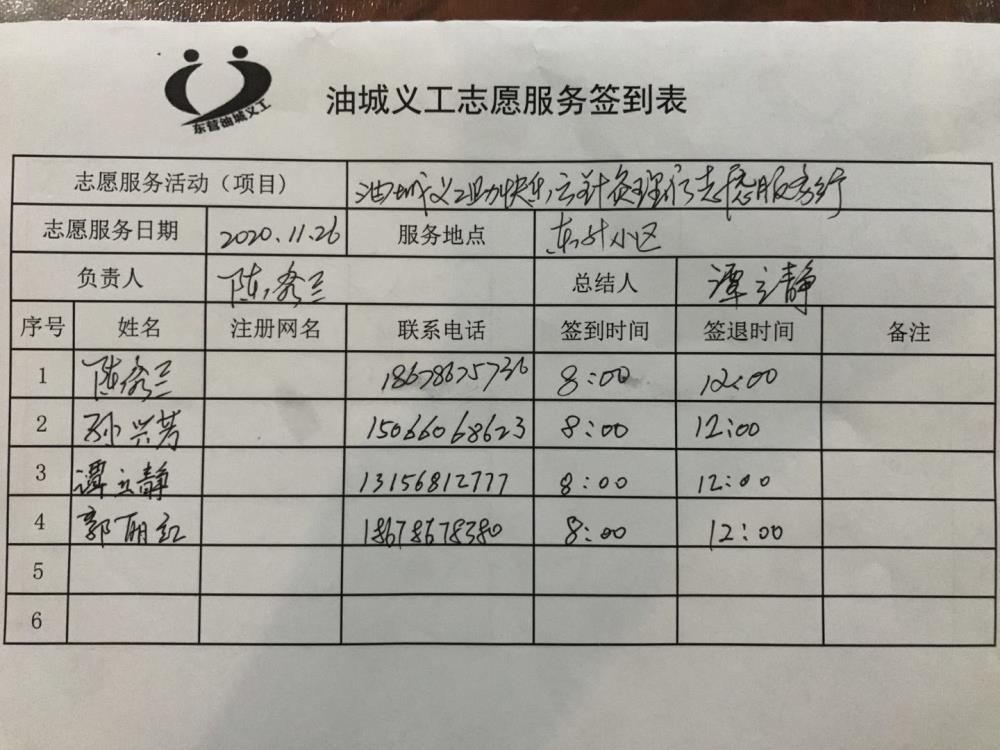 东营油城义工
油城义工志愿服务签到表
志愿服务活动（项目） 油城义工助快乐 针灸理疗志愿服务行
志愿服务日期 2020.11.26 服务地点 小区
负责人 陈 兰 总结人 谭立静
序号 姓名 注册网名 联系电话 签到时间 签退时间 备注
1 陈 兰 18678675736 8:00 12:00
2 孙兴芳 15066068623 8:00 12:00
3 谭立静 13156812777 8:00 12:00
4 郭丽红 18678678380 8:00 12:00
5
6